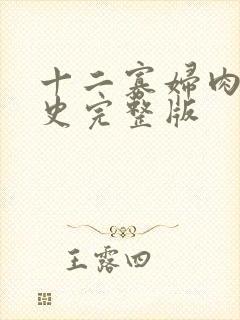 十二寡婦肉
史完整版
王露四